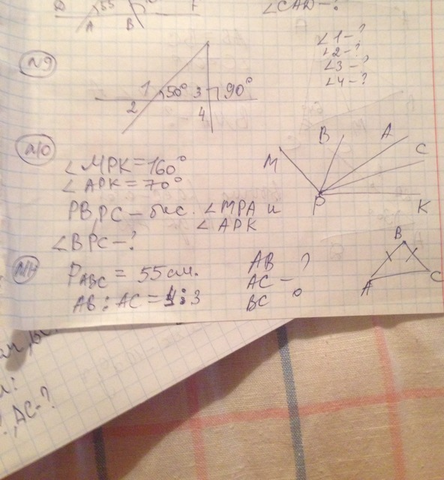 A B
∠CAD - ?
N9
∠1 - ?
∠2 - ?
∠3 - ?
∠4 - ?
1 50° 3 90°
2 4
N10
∠MPK = 160°
∠APK = 70°
PB, PC - бис. ∠MPA и ∠APK
∠BPC - ?
M B A C
P K
N11
P ABC = 55 см.
AB : AC = 4 : 3
AB
AC - ?
BC
B
A C
AC - ?